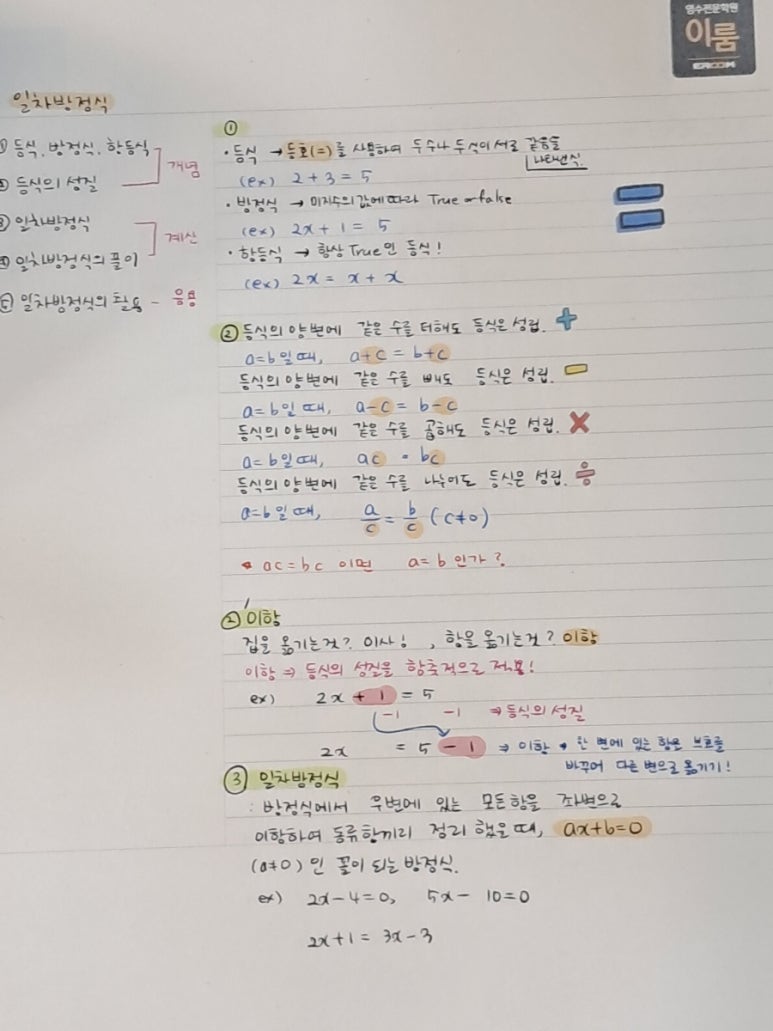 영수전문학원
이룸
EROOM
일차방정식
① 등식, 방정식, 항등식
② 등식의 성질
개념
③ 일차방정식
④ 일차방정식의 풀이
계산
⑤ 일차방정식의 활용 - 응용
①
· 등식 → 등호(=)를 사용하여 두 수나 두 식이 서로 같음을
나타낸 식.
(ex) 2 + 3 = 5
· 방정식 → 미지수의 값에 따라 True or false
(ex) 2x + 1 = 5
· 항등식 → 항상 True인 등식!
(ex) 2x = x + x
② 등식의 양변에 같은 수를 더해도 등식은 성립. +
a=b일 때, a+c = b+c
등식의 양변에 같은 수를 빼도 등식은 성립. −
a=b일 때, a-c = b-c
등식의 양변에 같은 수를 곱해도 등식은 성립. ×
a=b일 때, ac = bc
등식의 양변에 같은 수를 나누어도 등식은 성립. ÷
a=b일 때, a/c = b/c (c≠0)
ac = bc 이면 a=b 인가?
②' 이항
집을 옮기는 것? 이사! , 항을 옮기는 것? 이항
이항 ⇒ 등식의 성질을 함축적으로 적용!
ex) 2x + 1 = 5
-1 -1 ⇒ 등식의 성질
2x = 5 - 1 ⇒ 이항 → 한 변에 있는 항을 부호를
바꾸어 다른 변으로 옮기기!
③ 일차방정식
: 방정식에서 우변에 있는 모든 항을 좌변으로
이항하여 동류항끼리 정리 했을 때, ax+b=0
(a≠0) 인 꼴이 되는 방정식.
ex) 2x-4=0, 5x- 10=0
2x+1 = 3x-3